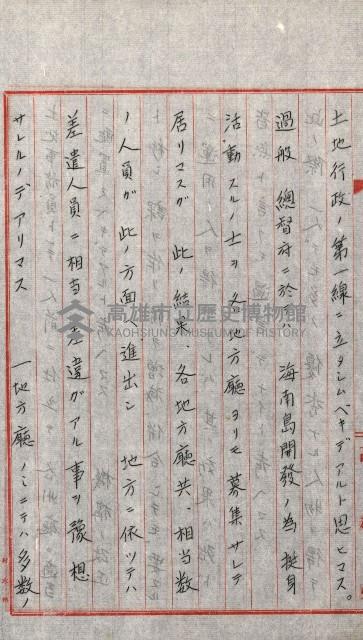 土地行政ノ第一線ニ立タシムベキデアルト思ヒマス。
過般 總督府ニ於テハ 海南島開發ノ為 挺身
活動スルノ士ヲ各地方廳ヨリモ募集サレテ
居リマスガ 此ノ結果、各地方廳共、相当数
ノ人員ガ 此ノ方面ヘ進出シ 地方ニ依ツテハ
差遣人員ニ相当ノ差違ガアル事ヲ豫想
サレルノデアリマス 一地方廳ノミニテハ多数ノ
高雄市立歷史博物館
KAOHSIUNG MUSEUM OF HISTORY